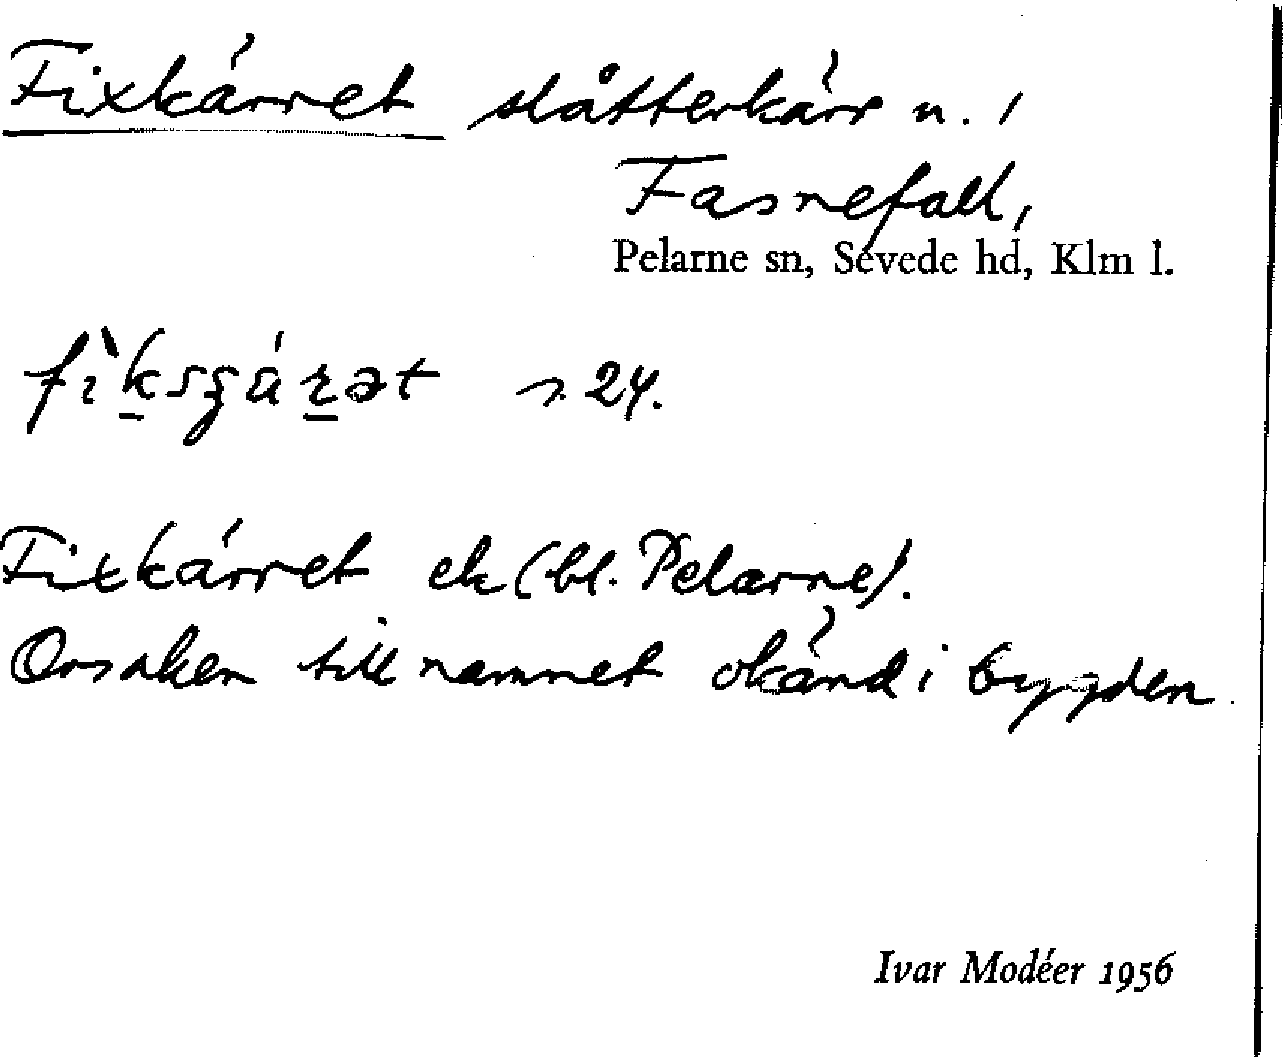 Fixkärret slåtterkärr n. i
Fasnefall,
Pelarne sn, Sevede hd, Klm l.
s. 24.
Fixkärret ek (bl. Pelarne).
Orsaken till namnet okänd i bygden.
Ivar Modéer 1956